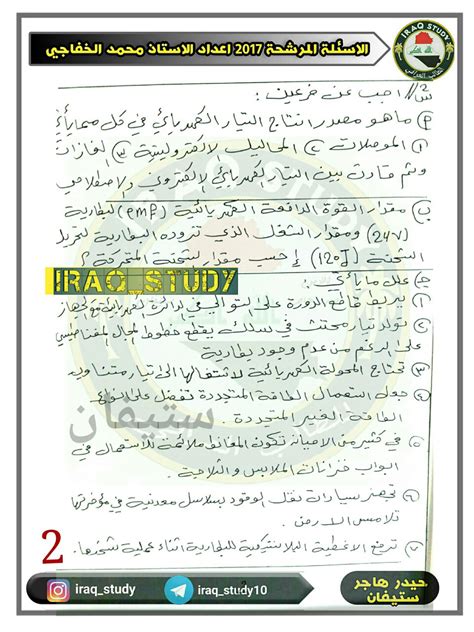 الاسئلة المرشحة 2017 اعداد الاستاذ محمد الخفاجي
IRAQ STUDY
س3// اجب عن فرعين :
P) ما هو مصدر انتاج التيار الكهربائي في كل مما يأتي
① الموصلات ② المحاليل الالكتروليتية ③ الغازات
وثم قارن بين التيار الكهربائي الالكتروني والاصطلاحي
ب) مقدار القوة الدافعة الكهربائية (emf) لبطارية
(24V) ومقدار الشغل الذي تزوده البطارية لتحريك
الشحنة (120J) احسب مقدار الشحنة المتحركة ؟
IRAQ_STUDY
ج) علل ما يأتي
① يربط قاطع الدورة على التوالي في دائرة كهربائية مع الجهاز
② تولد تيار محتث في سلك يقطع خطوط المجال المغناطيسي
على الرغم من عدم وجود بطارية
③ تحتاج المحولة الكهربائية لاشتغالها الى تيار متناوب
④ جعل استعمال الطاقة المتجددة تفضل على انواع
الطاقة الغير المتجددة .
ستيفان
⑤ في كثير من الاحيان تكون المغانط ملائمة للاستعمال في
ابواب خزانات الملابس والثلاجة .
⑥ تجهز سيارات نقل الوقود بسلاسل معدنية في مؤخرتها
تلامس الارض .
⑦ ترفع الاغطية البلاستيكية للبطارية اثناء عملية شحنها .
2
iraq_study
iraq_study10
حيدر هاجر
ستيفان